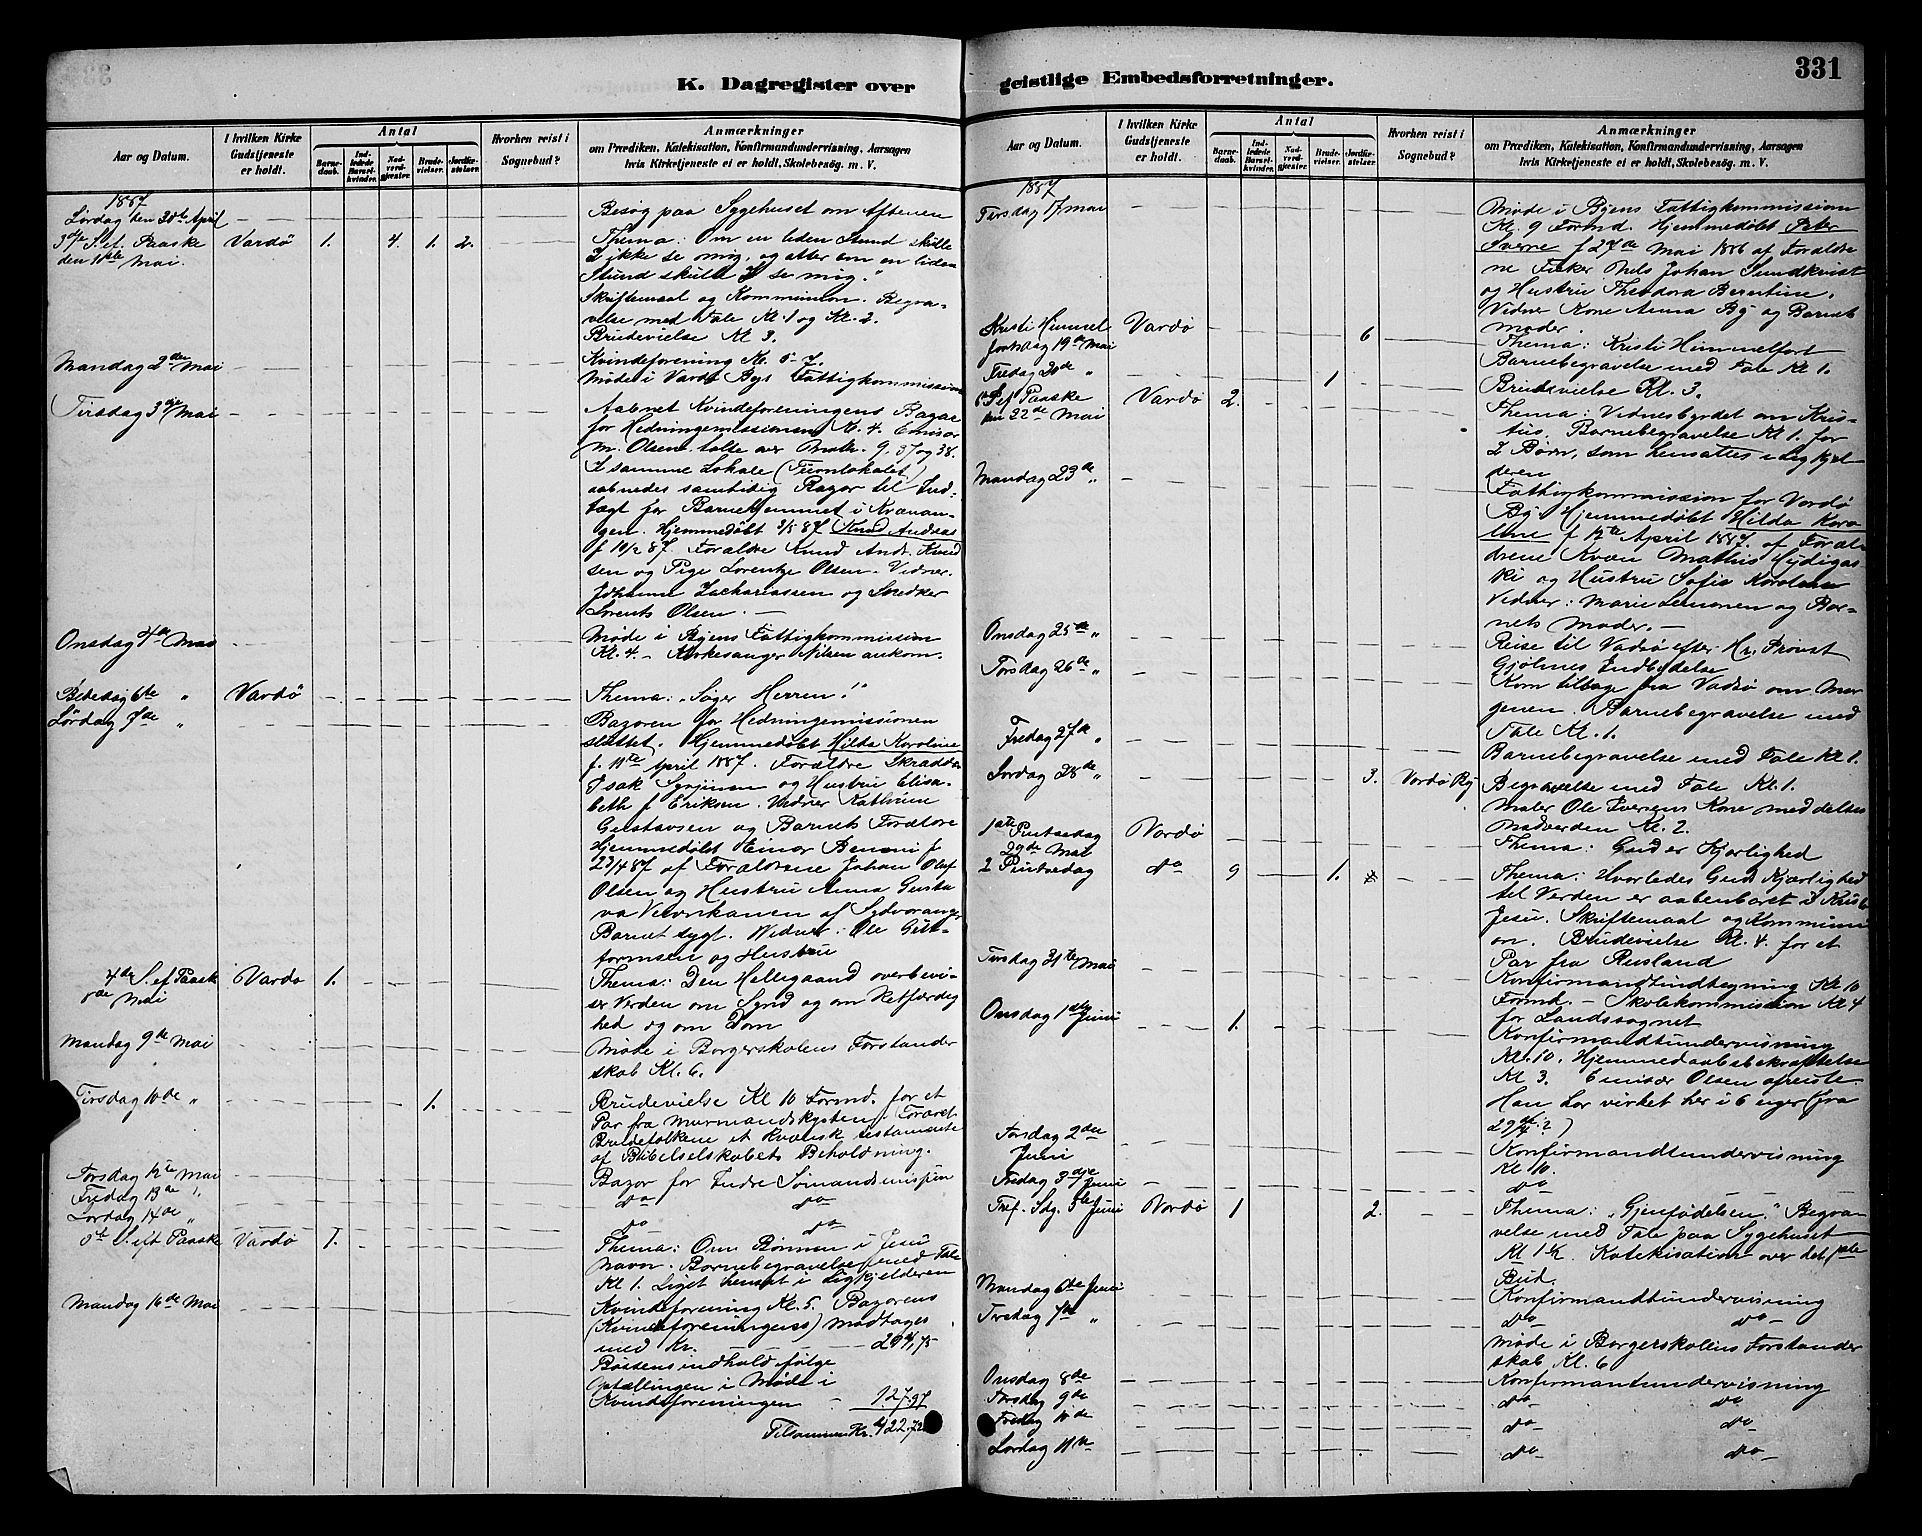 K. Dagregister over
Aar og Datum.
I hvilken Kirke Gudstjeneste er holdt.
Antal
Barnedaab.
Indledede Barselkvinder.
Nadverdgjester.
Brudevielser.
Jordfæstelser.
Hvorhen reist i Sognebud?
Anmærkninger
om Prædiken, Katekisation, Konfirmandundervisning, Aarsagen
hvis Kirketjeneste ei er holdt, Skolebesøg. m. V.
1887
Lørdag den 30te April Besøg paa Sygehuset om Aftenen
3die S. ef. Paaske Vardø 1. 4. 1. 2. Thema: Om en liden Stund skulle
den 1ste Mai. I ikke se mig, og atter om en liden
Stund skulle I se mig."
Skriftemaal og Kommunion. Begra-
velse med Tale Kl. 1 og Kl. 2.
Brudevielse Kl 3.
Mandag 2den Mai Kvindeforening Kl. 5-7.
Møde i Vardø Byes Fattigkommission
Tirsdag 3die Mai Aabnet Kvindeforeningens Bazar
for Hedningemissionen Kl. 4. Emisær
M. Olsen talte over Math. 9, 37 og 38.
I samme Lokale (Turnlokalet)
aabnedes samtidig Bazar til Ind-
tægt for Barnehjemmet i Kvænan-
gen. Hjemmedøbt 3/5 87 Knud Andreas
f 10/2 87. Forældre Knud Andr. Knud
sen og Pige Lorentze Olsen. Vidner.
Johanne Zachariassen og Snedker
Lorents Olsen. —
Onsdag 4de Mai Møde i Byens Fattigkommission
Kl. 4. — Kirkesanger Nilsen ankom.
Bededag 6te " Vardø Thema: "Søger Herren!"
Lørdag 7de " Bazaren for Hedningemissionen
sluttet. Hjemmedøbt Hilda Karoline
f. 11te April 1887. Forældre Skrædder
Isak Syrjinen og Hustru Elisa-
beth f Eriksen. Vidner Kathrine
Gustavsen og Barnets Forældre
Hjemmedøbt Einar Benoni f
23/4 87 af Forældrene Johan Olaf
Olsen og Hustru Anna Gusta
va af Sydvaranger
Barnet sygt. Vidner: Ole Gutt-
formsen og Hustru
4de S. ef Paask Vardø 1. Thema: Den Helligaand overbevi-
8de Mai ser Verden om Synd og om Retfærdig
hed og om Dom
Mandag 9de Mai Møde i Borgerskolens Forstander
skab Kl. 6.
Tirsdag 10de " 1. Brudevielse Kl 10 Formd. for et
Par fra Murmandskysten. Foræret
Brudefolkene et kvænsk testamente
af Bibelselskabets Beholdning.
Torsdag 12te Mai Bazar for Indre Sømandsmission
Fredag 13de " do do
Lørdag 14de " do do
5te S. eft Paaske Vardø 7. Thema: Om Bønnen i Jesu
Navn. Barnebegravelse med Tale
Kl 1. Liget hensat i Ligkjelderen
Mandag 16de Mai Kvindeforening Kl. 5. Bazarens
(Kvindeforeningens) modtages
med Kr. — 294,75
Bøssens indhold følge
Optællingen i Møde i
Kvindeforeningen — 127.97
Tilsammen Kr. 422.72
geistlige Embedsforretninger.
331
Aar og Datum.
I hvilken Kirke Gudstjeneste er holdt.
Antal
Barnedaab.
Indledede Barselkvinder.
Nadverdgjester.
Brudevielser.
Jordfæstelser.
Hvorhen reist i Sognebud?
Anmærkninger
om Prædiken, Katekisation, Konfirmandundervisning, Aarsagen
hvis Kirketjeneste ei er holdt, Skolebesøg m. V.
1887
Tirsdag 17 Mai Møde i Byens Fattigkommission
Kl. 9 Formd. Hjemmedøbt Peter
Sverre f 27de Mai 1886 af Forældre
ne Fisker Nels Johan Sundkvist
og Hustru Theodora Berntine.
Vidner Kone Anna By og Barnets
Moder.
Kristi Himmel Vardø 6 Thema: Kristi Himmelfart
fartsdag 19de Mai Barnebegravelse med Tale Kl 1.
Fredag 20de " 1 Brudevielse Kl. 3.
6te S. ef Paaske Vardø 2. Thema: Vidnesbyrdet om Kris-
den 22de Mai tus. Barnebegravelse Kl 1. for
2 Børn, som hensattes i Ligkjel-
deren
Mandag 23de " Fattigkommission for Vardø
By. Hjemmedøbt Hilda Karo
line f 12te April 1887. af Foræl-
drene Kvæn Mathis Hydigas
ki og Hustru Sofia Karoline
Vidner: Marie Lemonen og Bar-
nets Moder. —
Onsdag 25de " Reise til Vadsø efter Hr. Provst
Gjølmes Indbydelse
Torsdag 26de " Kom tilbage fra Vadsø om Mor
genen. Barnebegravelse med
Tale Kl. 1.
Fredag 27de " Barnebegravelse med Tale Kl 1.
Lørdag 28de " 3. Vardø By Begravelse med Tale Kl. 1.
Maler Ole Iversens Kone meddeltes
Nadverden Kl. 2.
1ste Pintsedag Vardø Thema: Gud er Kjærlighed
29de Mai
2 Pintsedag do 9 1. Thema: Hvorledes Guds Kjærlighed
til Verden er aabenbaret i Kristo
Jesu. Skriftemaal og Kommuni
on. Brudevielse Kl. 4. for et
Par fra Rusland
Tirsdag 31te Mai Konfirmandtindtegning Kl 10
Formd. — Skolekommission Kl 4
for Landssognet
Onsdag 1ste Juni 1. Konfirmandtundervisning
Kl. 10. Hjemmedaabsbekræftelse
Kl 3. Emisær Olsen afreiste
Han har virket her i 6 uger (fra
29de/4?)
Torsdag 2den Konfirmandtundervisning
Juni Kl 10.
Fredag 3die Juni do
Tref. Sdg. 5te Juni Vardø 1 2. Thema: "Gjenfødelsen." Begra-
velse med Tale paa Sygehuset
Kl 1½. Katekisation over det
Bud.
Mandag 6te Juni Konfirmandtundervisning
Tirsdag 7de " do do
Møde i Borgerskolens Forstander
skab Kl. 6
Onsdag 8de Konfirmantundervisning
Torsdag 9de do do
Fredag 10de do do
Lørdag 11te do do